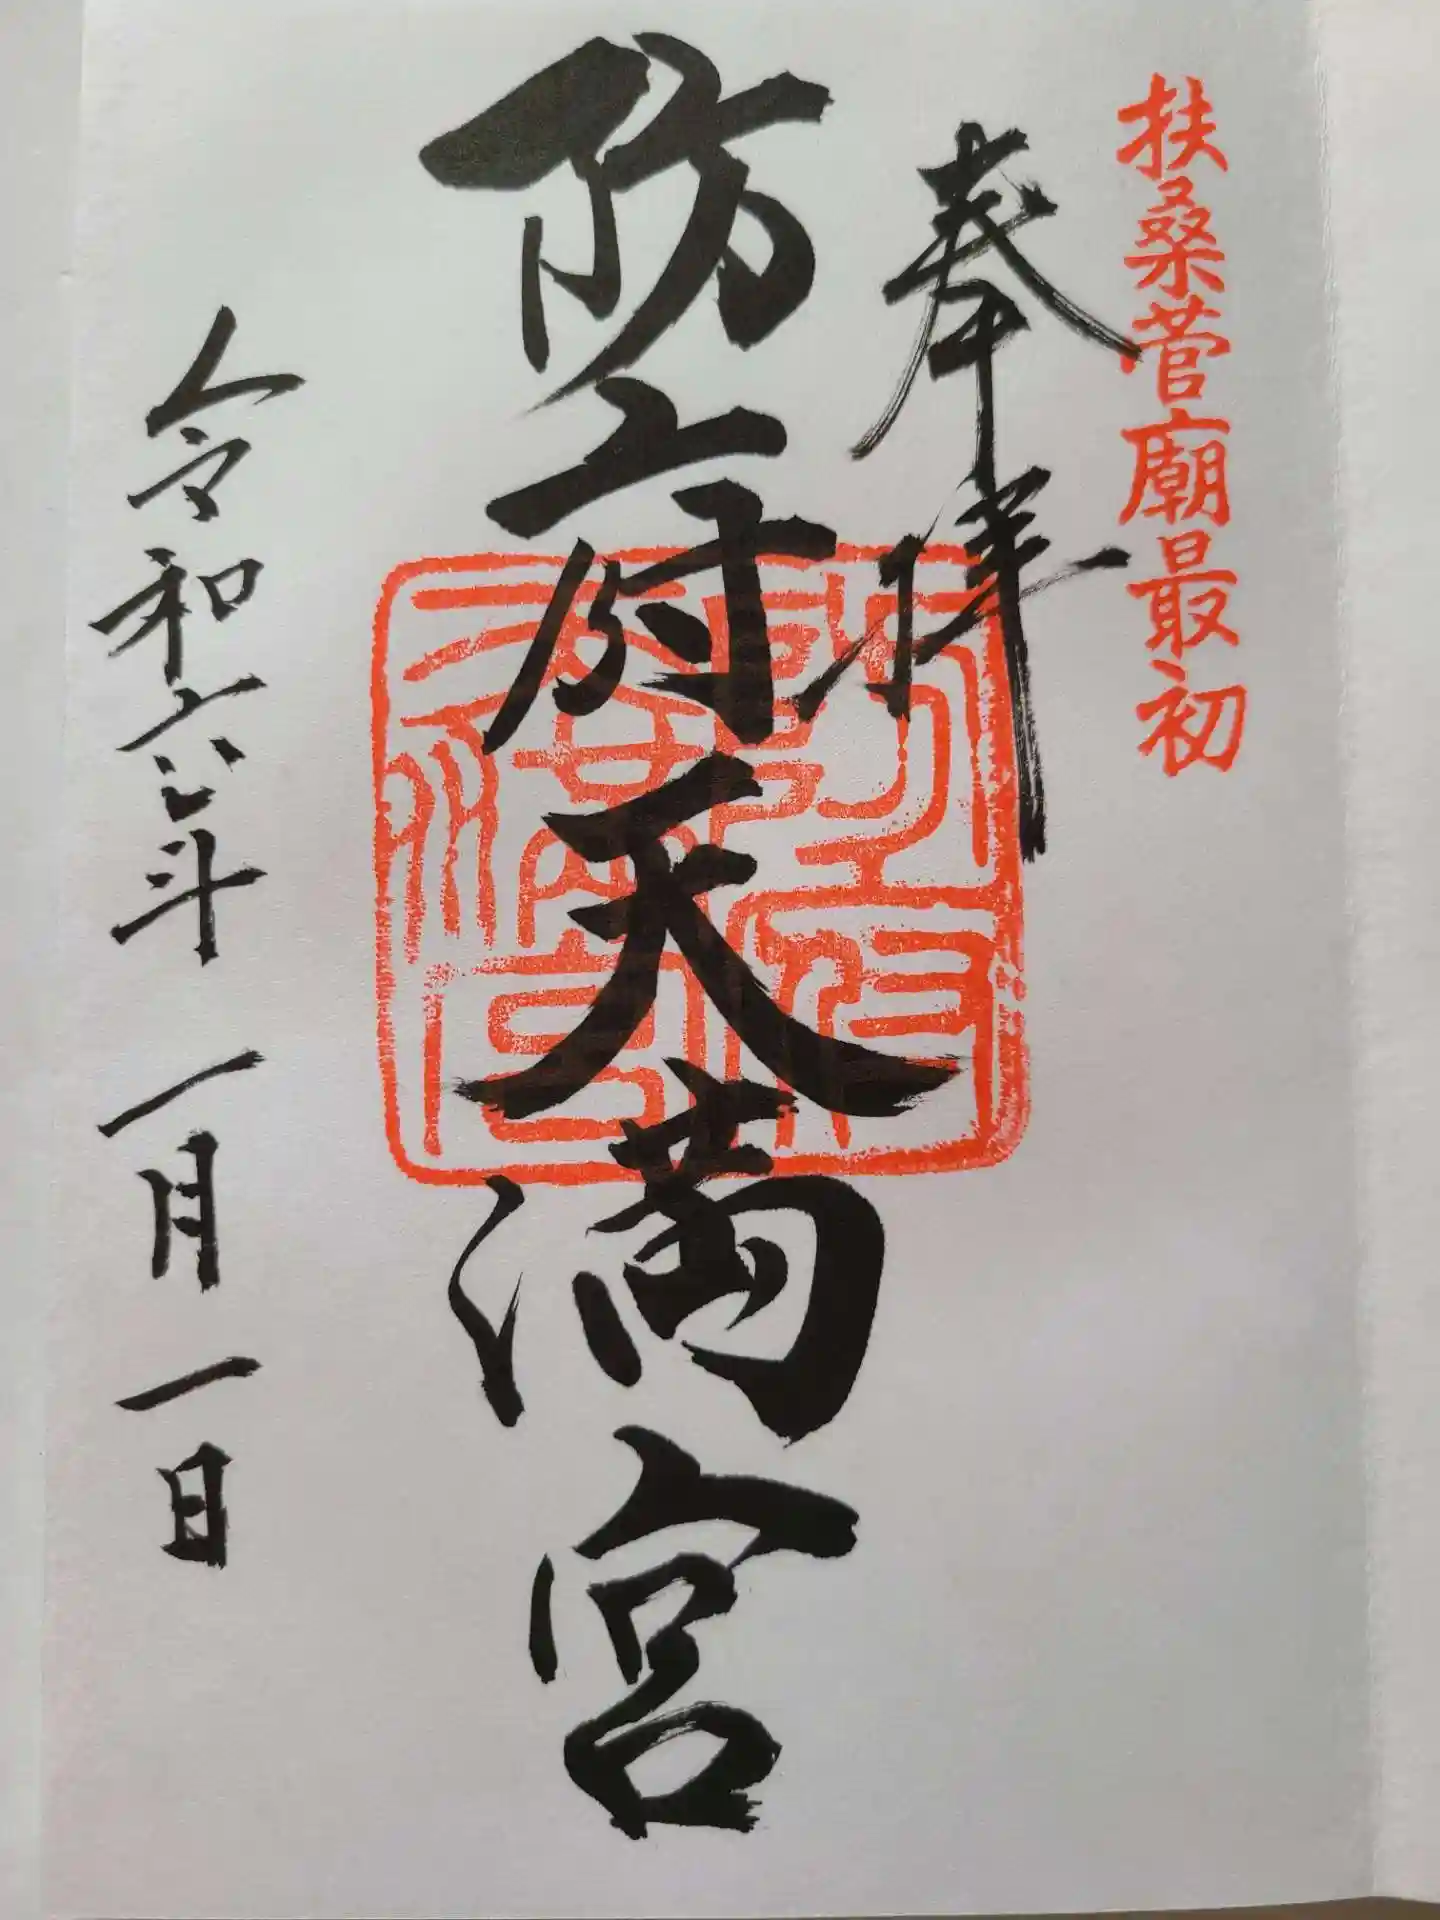 扶桑菅廟最初
奉拝
防府天満宮
防府天満宮
令和六年 一月一日